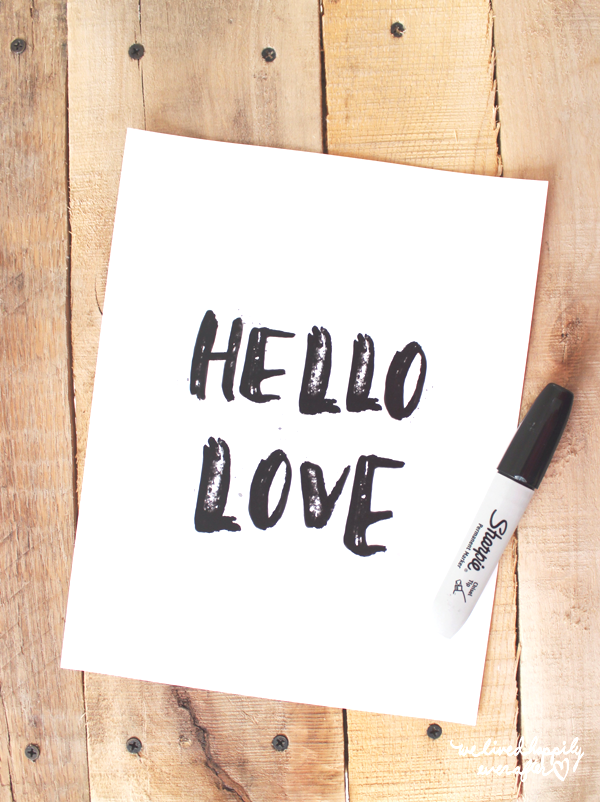 HELLO
LOVE
Sharpie
Permanent Marker
Chisel
Tip
we lived happily
ever after